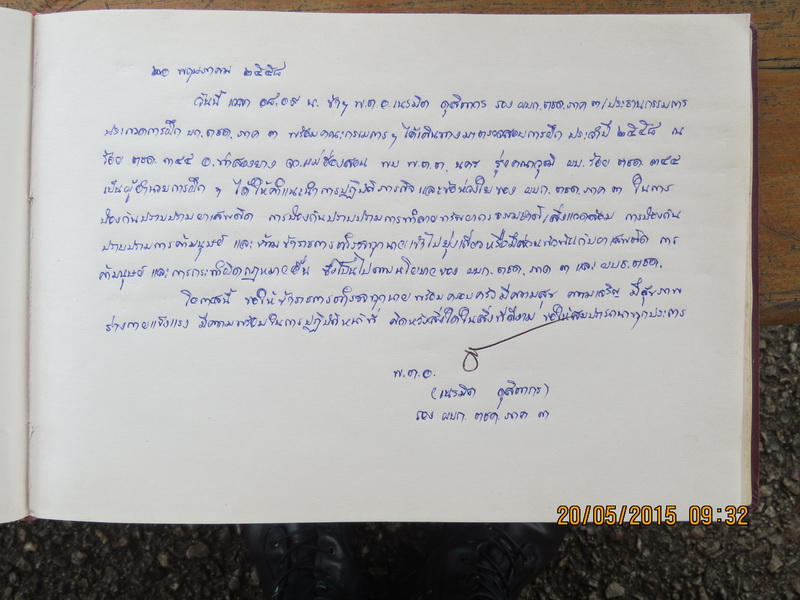 ๒๐ พฤษภาคม ๒๕๕๘
วันนี้ เวลา ๐๙.๐๙ น. ข้าฯ พ.ต.อ.เนรมิต อุสิตากร รอง ผบก.ตชด.ภาค ๓/ประธานกรรมการ
ประกวดการฝึก บก.ตชด.ภาค ๓ พร้อมคณะกรรมการฯ ได้เดินทางมาตรวจสอบการฝึก ประจำปี ๒๕๕๘ ณ
ร้อย ตชด.๓๔๔ อ. จว.แม่ฮ่องสอน พบ พ.ต.ต. ผบ.ร้อย ตชด.๓๔๔
เป็นผู้อำนวยการฝึก ฯ ได้ให้คำแนะนำการปฏิบัติภารกิจ และข้อห่วงใยของ ผบก.ตชด.ภาค ๓ ในการ
ป้องกันปราบปรามยาเสพติด การป้องกันปราบปรามการทำลายทรัพยากรธรรมชาติ/สิ่งแวดล้อม การป้องกัน
ปราบปรามการค้ามนุษย์ และห้ามข้าราชการตำรวจทุกนายเข้าไปยุ่งเกี่ยวหรือมีส่วนพัวพันกับยาเสพติด การ
ค้ามนุษย์ และการกระทำผิดกฎหมายอื่น ซึ่งเป็นไปตามนโยบายของ ผบก.ตชด.ภาค ๓ และ ผบช.ตชด.
โอกาสนี้ ขอให้ข้าราชการตำรวจทุกนายพร้อมครอบครัวมีความสุข ความเจริญ มีสุขภาพ
ร่างกายแข็งแรง มีความพร้อมในการปฏิบัติหน้าที่ คิดหวังสิ่งใดในสิ่งที่ดีงาม ขอให้สมปรารถนาทุกประการ
พ.ต.อ.
(เนรมิต อุสิตากร)
รอง ผบก.ตชด.ภาค ๓
20/05/2015 09:32